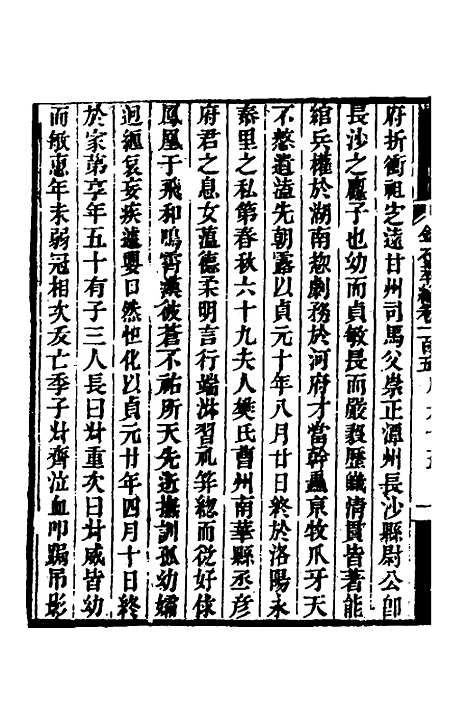 金石萃編卷一百五
府折衝祖之遠甘州司馬父崇正潭州長沙縣尉公卽
長沙之𢊍子也幼而貞敏長而嚴毅歷職清貫皆著能
綰兵權於湖南惣劇務於河府才當幹蠱京牧爪牙天
不憗遺溘先朝露以貞元十年八月廿日終於洛陽永
泰里之私第春秋六十九夫人樊氏曹州南華縣丞彦
府君之息女蕴德柔明言行端淋習礼笄緫而從好俅
鳳凰于飛和鳴霄漢彼蒼不祐所天先逝撫訓孤幼孀
迥纏哀妄疾遽嬰口然怛化以貞元廿年四月十日終
於家苐享年五十有子三人長曰尗重次曰尗威皆幼
而敏惠年未弱冠相次夭亡季子尗齊泣血叩蹋吊影